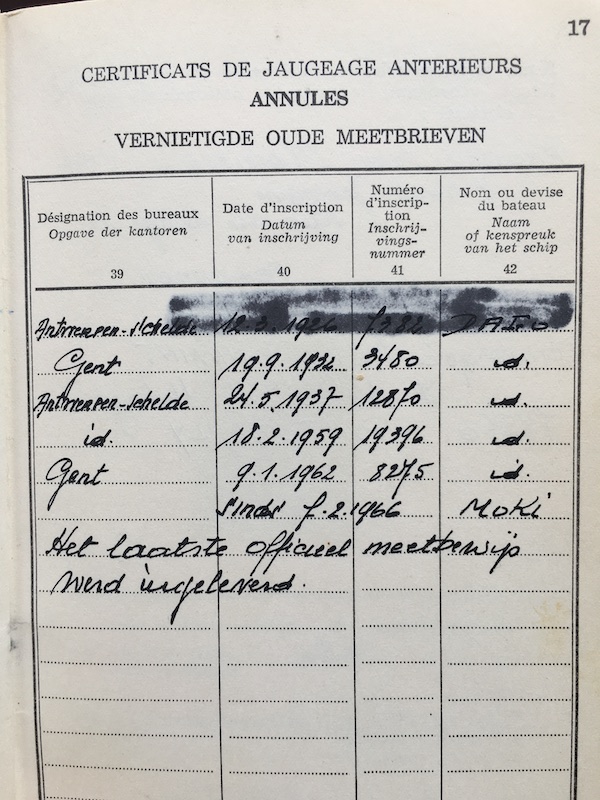 17
CERTIFICATS DE JAUGEAGE ANTERIEURS
ANNULES
VERNIETIGDE OUDE MEETBRIEVEN
Désignation des bureaux
Opgave der kantoren
39
Date d'inscription
Datum
van inschrijving
40
Numéro
d'inscrip-
tion
Inschrij-
vings-
nummer
41
Nom ou devise
du bateau
Naam
of kenspreuk
van het schip
42
Antwerpen-Schelde 12.3.1926
Gent 19.9.1932 3480 id.
Antwerpen-Schelde 24.5.1937 12870 id.
id. 18.2.1959 19396 id.
Gent 9.1.1962 8275 id.
Sinds 7.2.1966 MOKI
Het laatste officieel meetbewijs
werd ingeleverd.